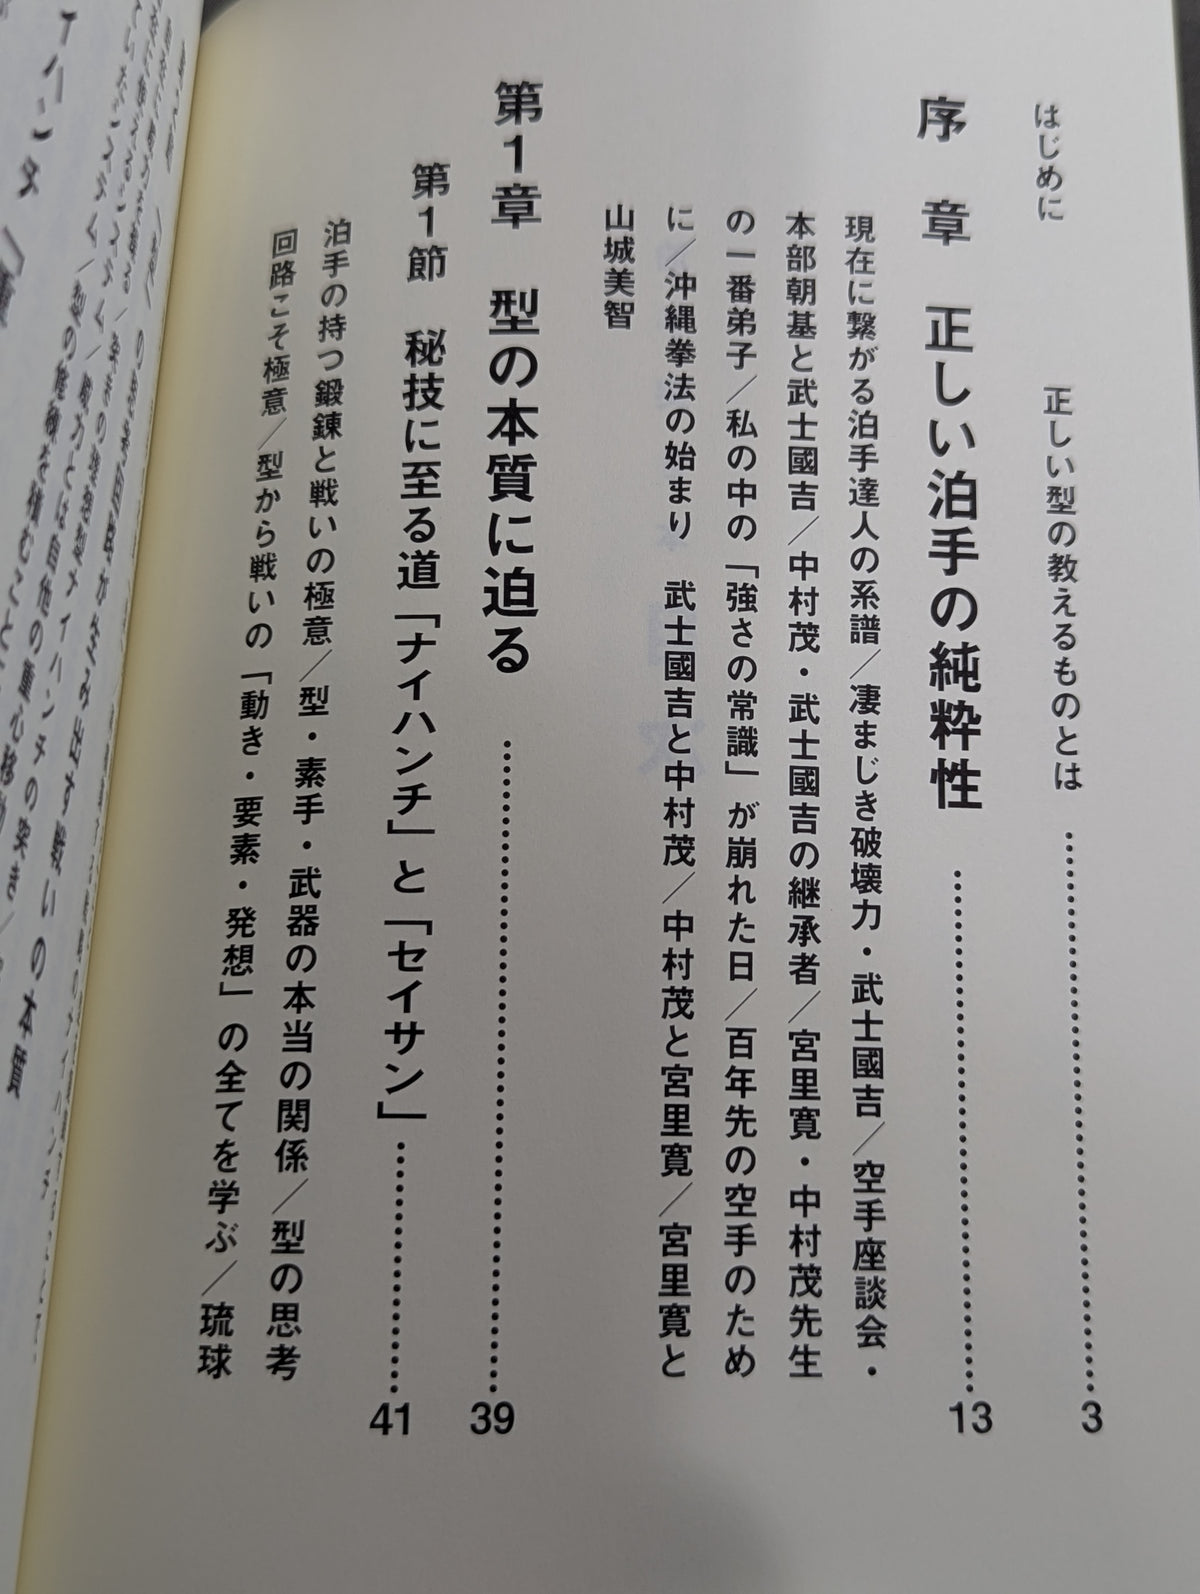 はじめに　正しい型の教えるものとは……3
序　章　正しい泊手の純粋性……13
現在に繋がる泊手達人の系譜／凄まじき破壊力・武士國吉／空手座談会・
本部朝基と武士國吉／中村茂・武士國吉の継承者／宮里寛・中村茂先生
の一番弟子／私の中の「強さの常識」が崩れた日／百年先の空手のため
に／沖縄拳法の始まり　武士國吉と中村茂／中村茂と宮里寛／宮里寛と
山城美智
第1章　型の本質に迫る……39
第1節　秘技に至る道「ナイハンチ」と「セイサン」……41
泊手の持つ鍛錬と戦いの極意／型・素手・武器の本当の関係／型の思考
回路こそ極意／型から戦いの「動き・要素・発想」の全てを学ぶ／琉球